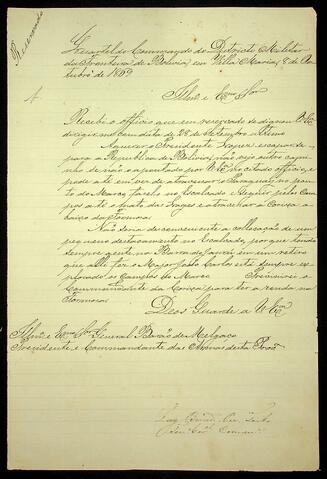 Reservado
Quartel do Commando do Districto Militar
da Fronteira de Bolivia, em Villa Maria, 8 de Ou
tubro de 1869
Illmo e Exmo Snr
Recebi o officio que em reservado se dignou V. Exa
dirigir-me com data de 28 de Setembro ultimo
Aquerer o Presidente Lopes escapar-se
para a Republica de Bolivia, não vejo outro cami
nho senão o apontado por V. Exa no citado officio, e
pode até em vez de atravessar o Paraguai no pon
to do Março, fasel-o no Escalvado e seguir pelos Cam
pos até o
abaixo da Formosa
Não seria desconveniente a collocação de um
pequeno destacamento no Escalvado, por que tendo
sempre gente na Barra do Jaurú, em um retiro
que alli fez o Major João Carlos está sempre ex
plorado os Campos do Março Previni a
Commandante da Corixa para ter a ronda na
Formosa
Deos Guarde a V. Exa
Illmo e Exmo Snr General Barão de Melgaço
Presidente e Commandante das Armas desta Prova